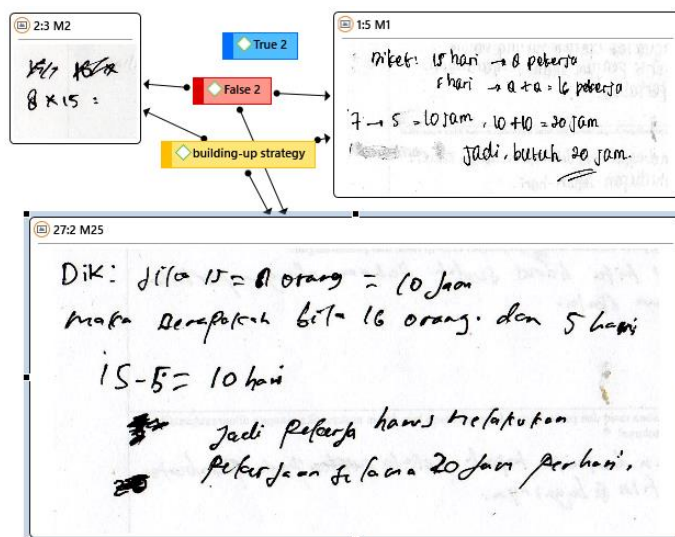 2:3 M2
8 × 15 =
True 2
False 2
building-up strategy
1:5 M1
Diket: 15 hari → 8 pekerja
5 hari → 8 + 8 = 16 pekerja
7 → 5 = 10 jam, 10 + 10 = 20 jam
Jadi, butuh 20 jam.
27:2 M25
Dik: Jika 15 = 8 orang = 10 Jam
maka Berapakah bila 16 orang. dan 5 hari
15 - 5 = 10 hari
Jadi Pekerja harus melakukan
Pekerjaan selama 20 jam perhari.